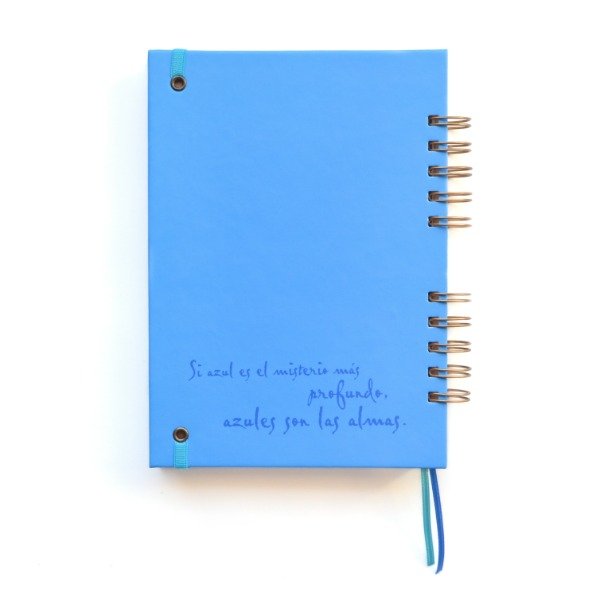 Si azul es el misterio más
profundo,
azules son las almas.